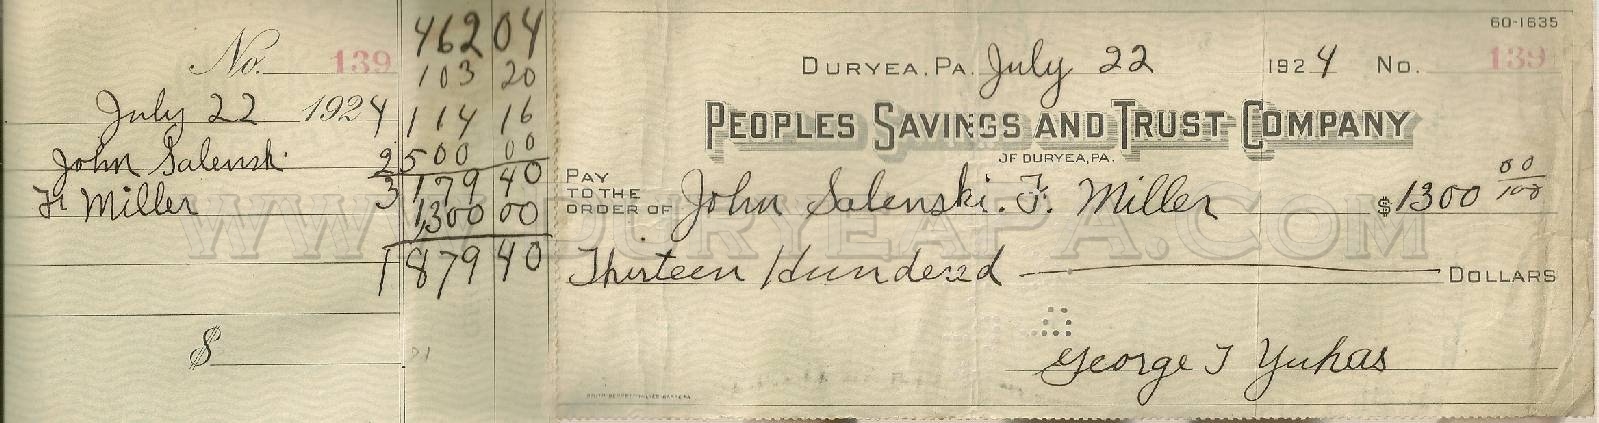 No. 139
July 22 1924
John Salenski
Fr Miller
$
462 04
103 20
114 16
2500 00
3179 40
1,300 00
1879 40
60-1635
DURYEA, PA. July 22 1924 No. 139
PEOPLES SAVINGS AND TRUST COMPANY
OF DURYEA, PA.
PAY TO THE ORDER OF John Salenski. F. Miller $1300 00/100
Thirteen Hundered DOLLARS
George T Yuhas
WWW.DURYEAPA.COM